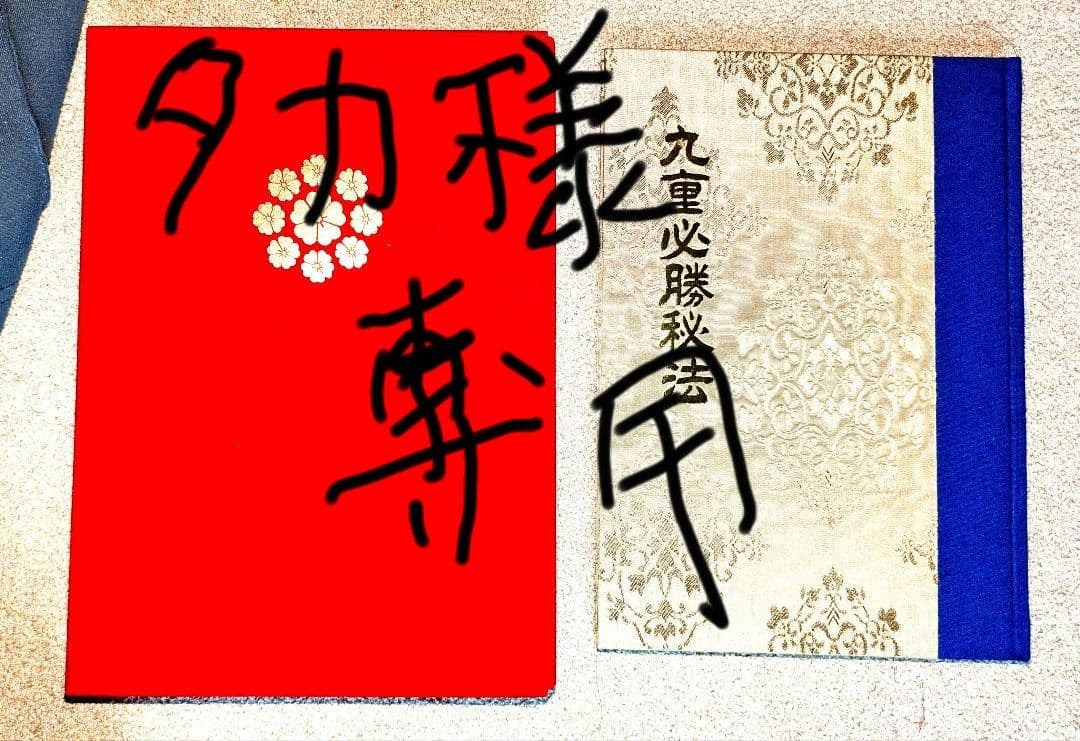 タカ様
専用
九重必勝秘法